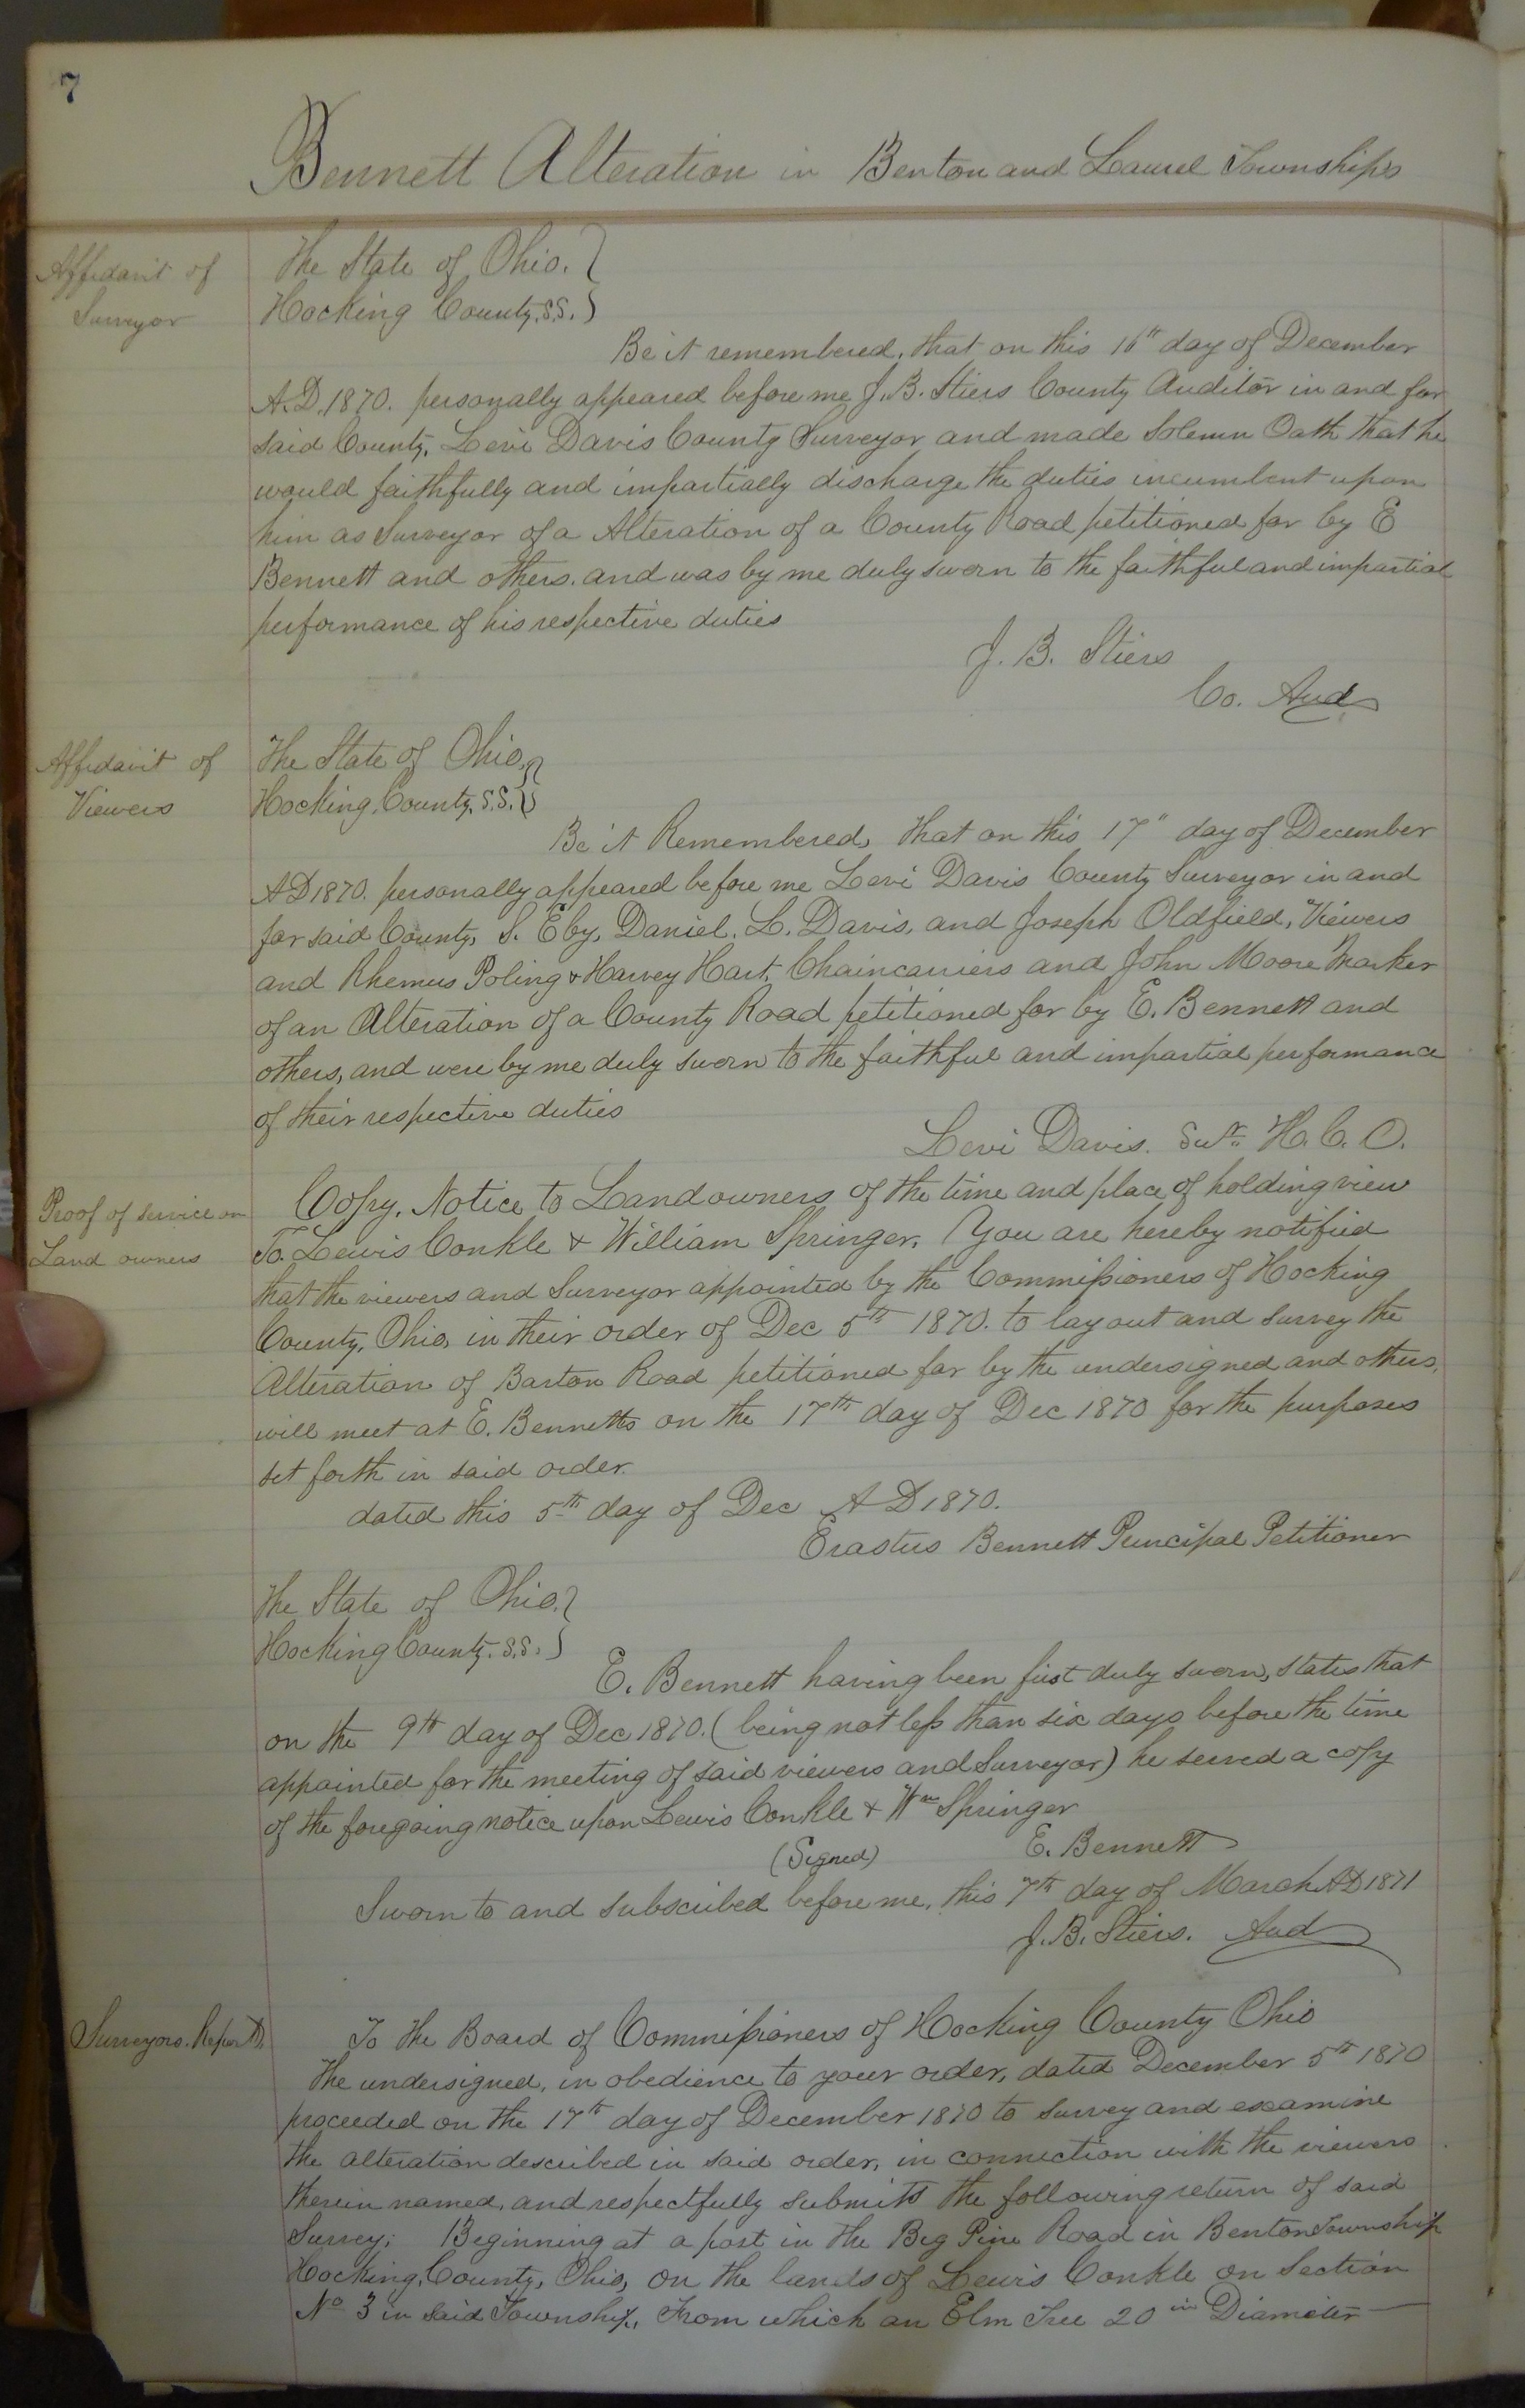 7
Bennett Alteration in Benton and Laurel Townships
Affidavit of
Surveyor
The State of Ohio. }
Hocking County, S.S. }
Be it remembered, that on this 16th day of December
A.D. 1870. personally appeared before me J. B. Stiers County Auditor in and for
said County, Levi Davis County Surveyor and made solemn Oath that he
would faithfully and impartially discharge the duties incumbent upon
him as Surveyor of a Alteration of a County Road petitioned for by E
Bennett and others. and was by me duly sworn to the faithful and impartial
performance of his respective duties
J. B. Stiers
Co. Aud
Affidavit of
Viewers
The State of Ohio, }
Hocking County, S.S. }
Be it Remembered, that on this 17" day of December
A D 1870. personally appeared before me Levi Davis County Surveyor in and
for said County, S. Eby, Daniel. L. Davis, and Joseph Oldfield, Viewers
and Rhemus Poling & Harvey Hart, Chaincarriers and John Moore Marker
of an Alteration of a County Road petitioned for by E. Bennett and
others, and were by me duly sworn to the faithful and impartial performance
of their respective duties
Levi Davis. Sur. H. C. O.
Proof of service on
Land owners
Copy. Notice to Landowners of the time and place of holding view
To. Lewis Conkle & William Springer, You are hereby notified
that the viewers and Surveyor appointed by the Commissioners of Hocking
County, Ohio, in their order of Dec 5th 1870. to lay out and survey the
Alteration of Barton Road petitioned for by the undersigned and others,
will meet at E. Bennetts on the 17th day of Dec 1870 for the purposes
set forth in said order.
dated this 5th day of Dec A D 1870.
Erastus Bennett Principal Petitioner
The State of Ohio. }
Hocking County. S.S. }
E. Bennett having been first duly sworn, states that
on the 9th day of Dec 1870. (being not less than six days before the time
appointed for the meeting of said viewers and Surveyor) he served a copy
of the foregoing notice upon Lewis Conkle & Wm Springer
(Signed) E. Bennett
Sworn to and subscribed before me, this 7th day of March A D 1871
J. B. Stiers. Aud
Surveyors. Report.
To the Board of Commissioners of Hocking County Ohio
The undersigned, in obedience to your order, dated December 5th 1870
proceeded on the 17th day of December 1870 to survey and examine
the alteration described in said order, in connection with the viewers
therein named, and respectfully submits the following return of said
Survey; Beginning at a post in the Big Pine Road in Benton Township
Hocking, County, Ohio, on the lands of Lewis Conkle on Section
No 3 in said Township, From which an Elm Tree 20 in Diameter